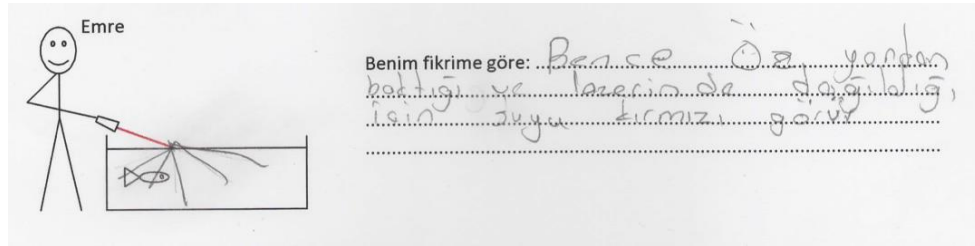 Emre
Benim fikrime göre: Bence Öz yandan
baktığı ve lazerin de dağıldığı
için suyu kırmızı görür